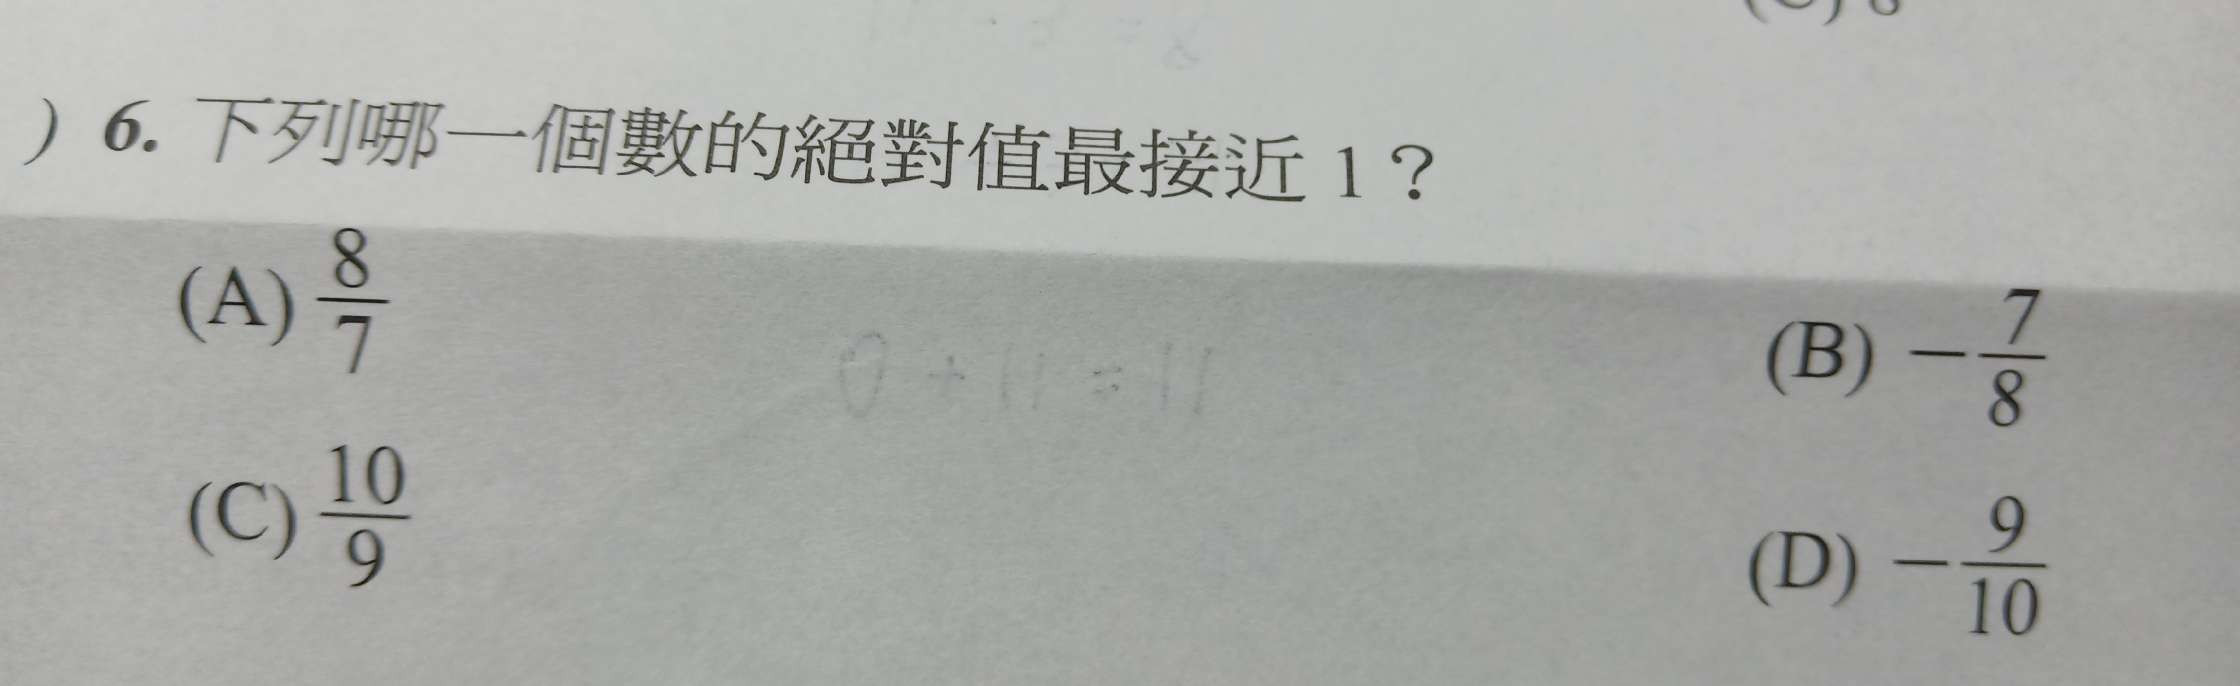 ) 6. 下列哪一個數的絕對值最接近 1？
(A) 8/7
(B) −7/8
(C) 10/9
(D) −9/10